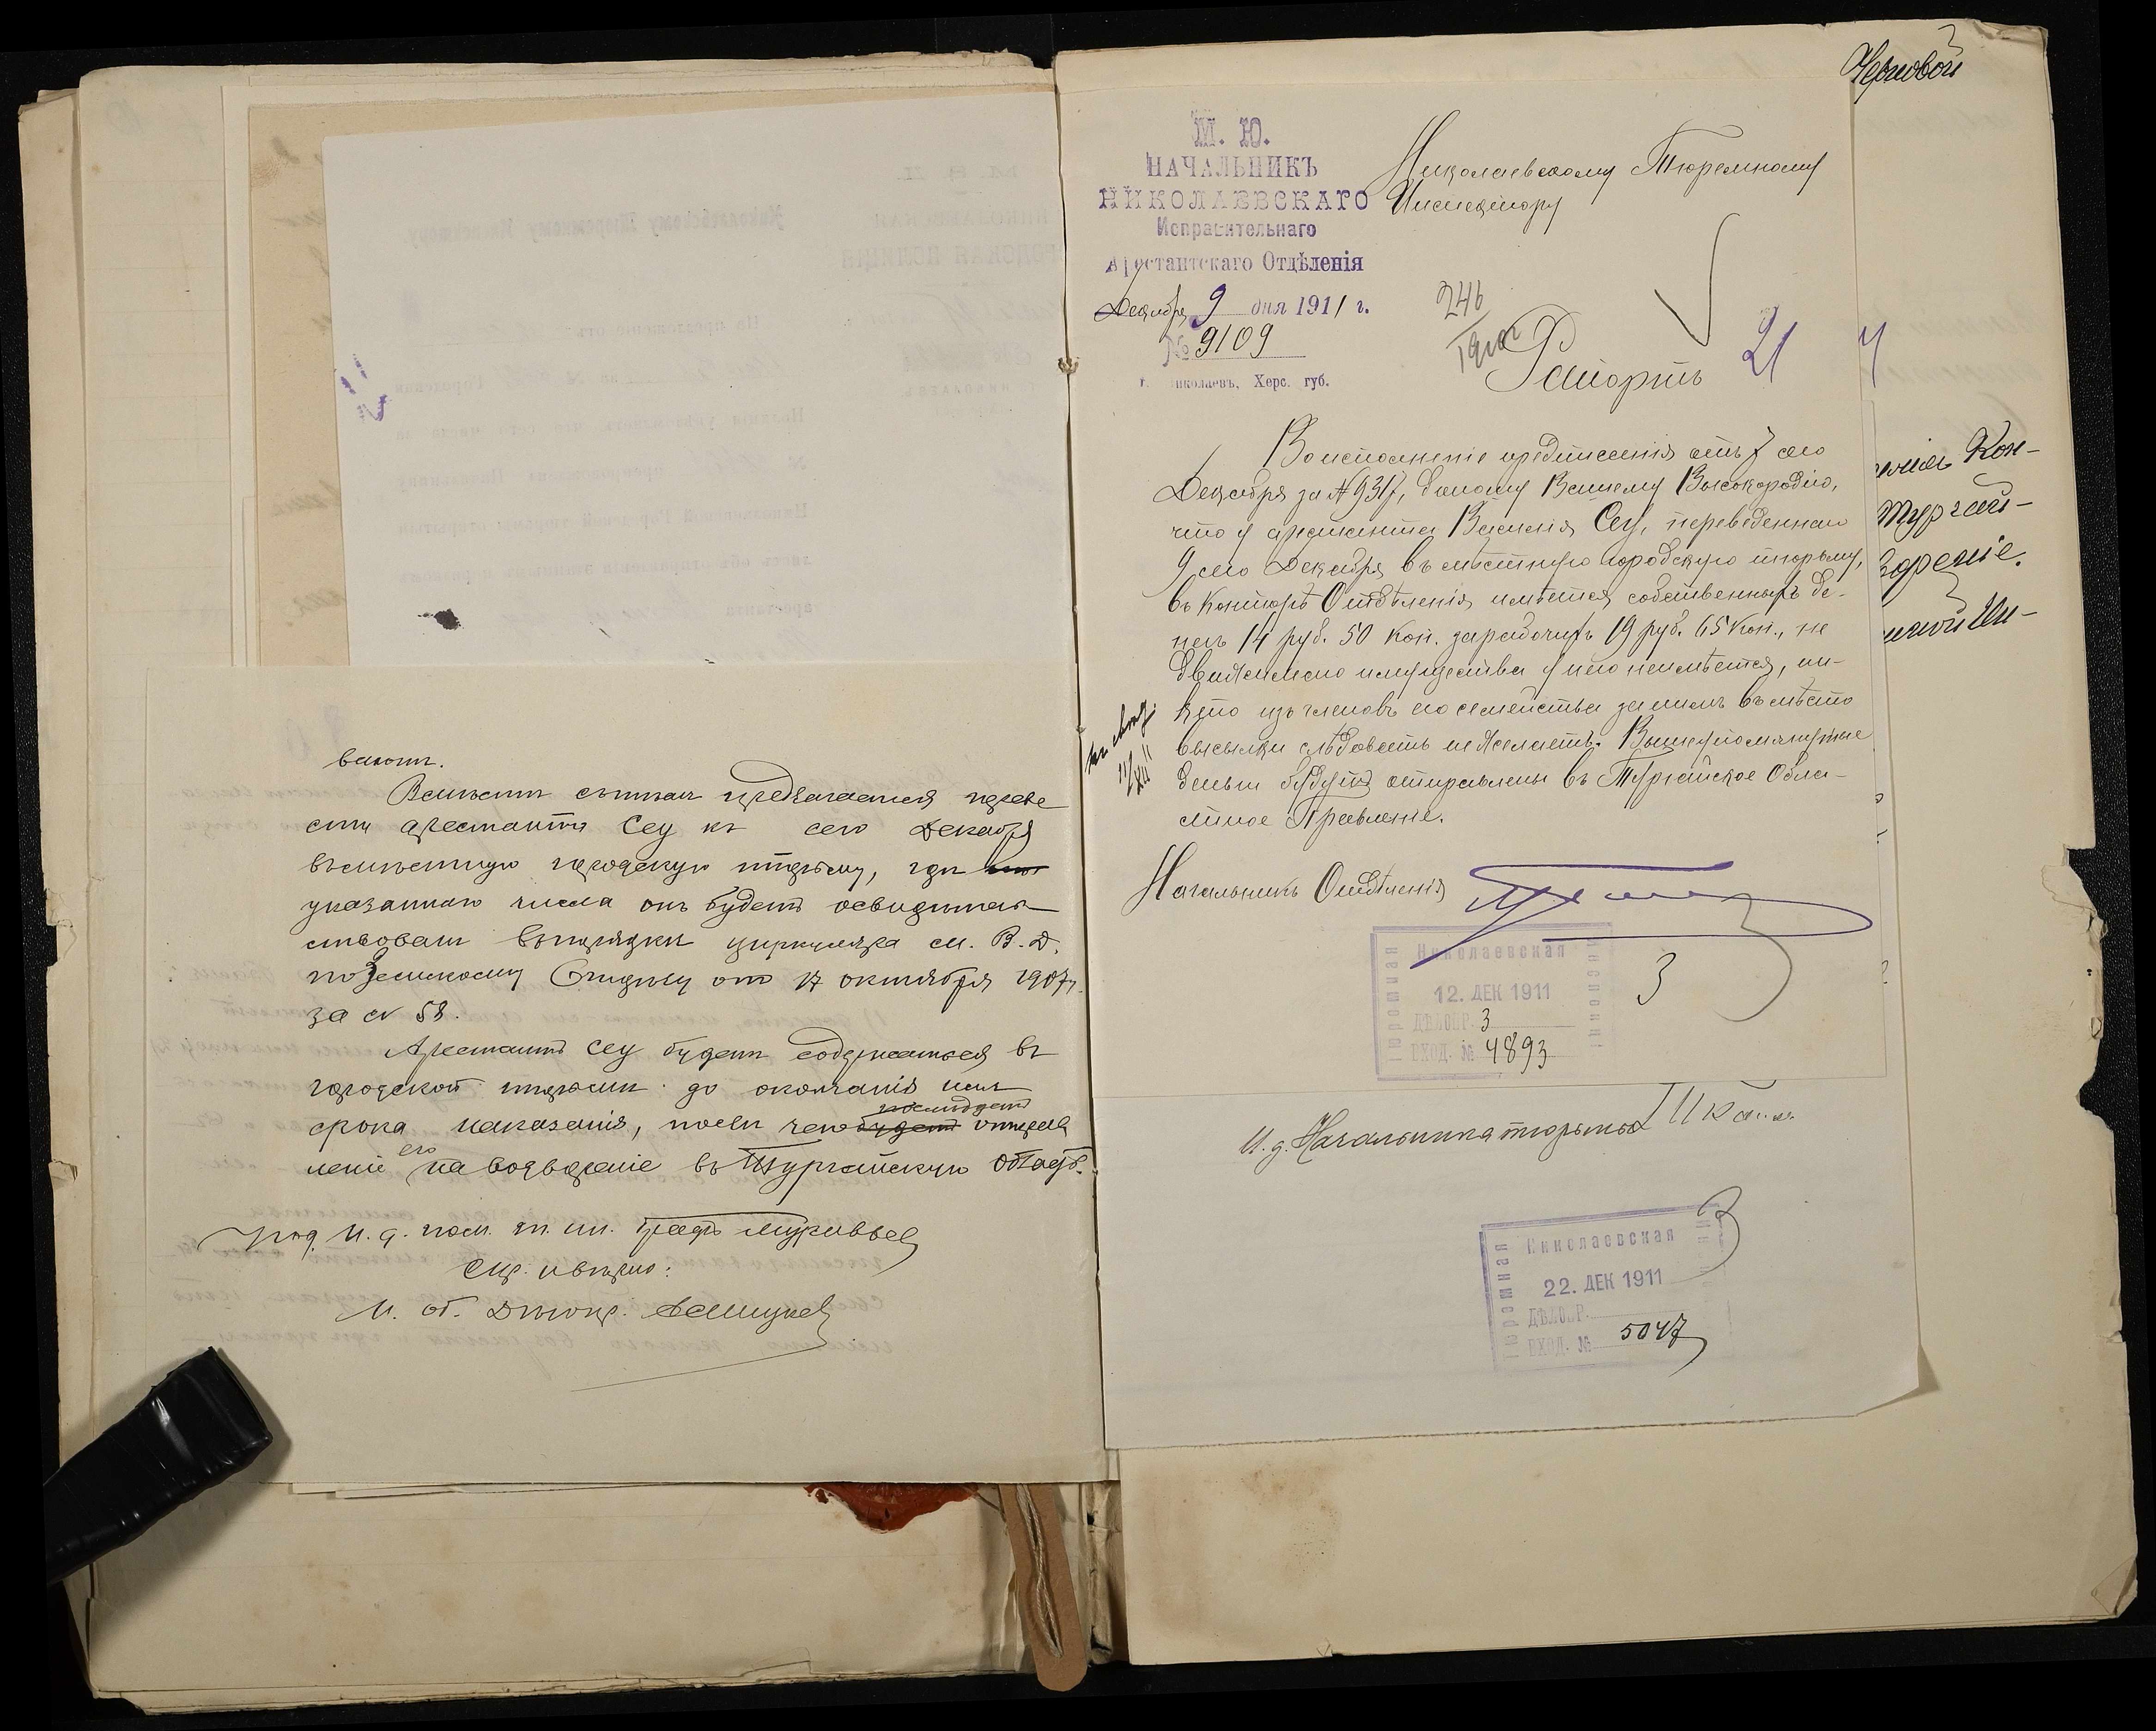 вают.
Вслѣдствіе
предлагается переве
сти арестанта Сеу къ сего Декабря
въ мѣстную городскую тюрьму, гдѣ
указаннаго числа онъ будетъ освидѣтель
ствованъ въ порядкѣ циркуляра М. В. Д.
по Земскому Отдѣлу от 17 октября 1907 г.
за № 53.
Арестантъ Сеу будетъ содержаться въ
городской тюрьмѣ до окончанія имъ
послѣдуетъ
срока наказанія, послѣ чего будетъ отправ
леніе его на водвореніе въ Тургайскую область.
Подп. И. д. пом. тп. ин. Графъ Муравьев
Скр. и вѣрно:
И. об. Дѣлопр.
Черновой
М. Ю.
НАЧАЛЬНИКЪ
НИКОЛАЕВСКАГО
Исправительнаго
Арестантскаго Отдѣленія
Декабря 9 дня 1911 г.
№ 9109
г. Николаевъ, Херс. губ.
Николаевскому Тюремному
Инспектору
246
Рапортъ
21
4
Во исполненіе предписанія отъ 7 сего
Декабря за № 9317, доношу Вашему Высокородію,
что у арестанта Василія Сеу, переведеннаго
9 сего Декабря въ мѣстную городскую тюрьму,
въ конторѣ Отдѣленія имѣется собственныхъ де-
негъ 14 руб. 50 коп. заработныхъ 19 руб. 65 коп., не
движимаго имущества у него неимѣется, ни-
кто изъ членовъ его семейства за нимъ въ мѣсто
высылки слѣдовать не желаетъ. Вышеупомянутые
деньги будутъ отправлены въ Тургайское Обла-
стное Правленіе.
Начальникъ Отдѣленія
Кон-
Тургай-
3
Николаевская
Тюремная
Инспекц
12. ДЕК 1911
ДѢЛОПР. 3
ВХОД. № 4893
И. д. Начальника тюрьмы
3
Николаевская
Тюремная
22. ДЕК 1911
ДѢЛОПР.
ВХОД. № 5047